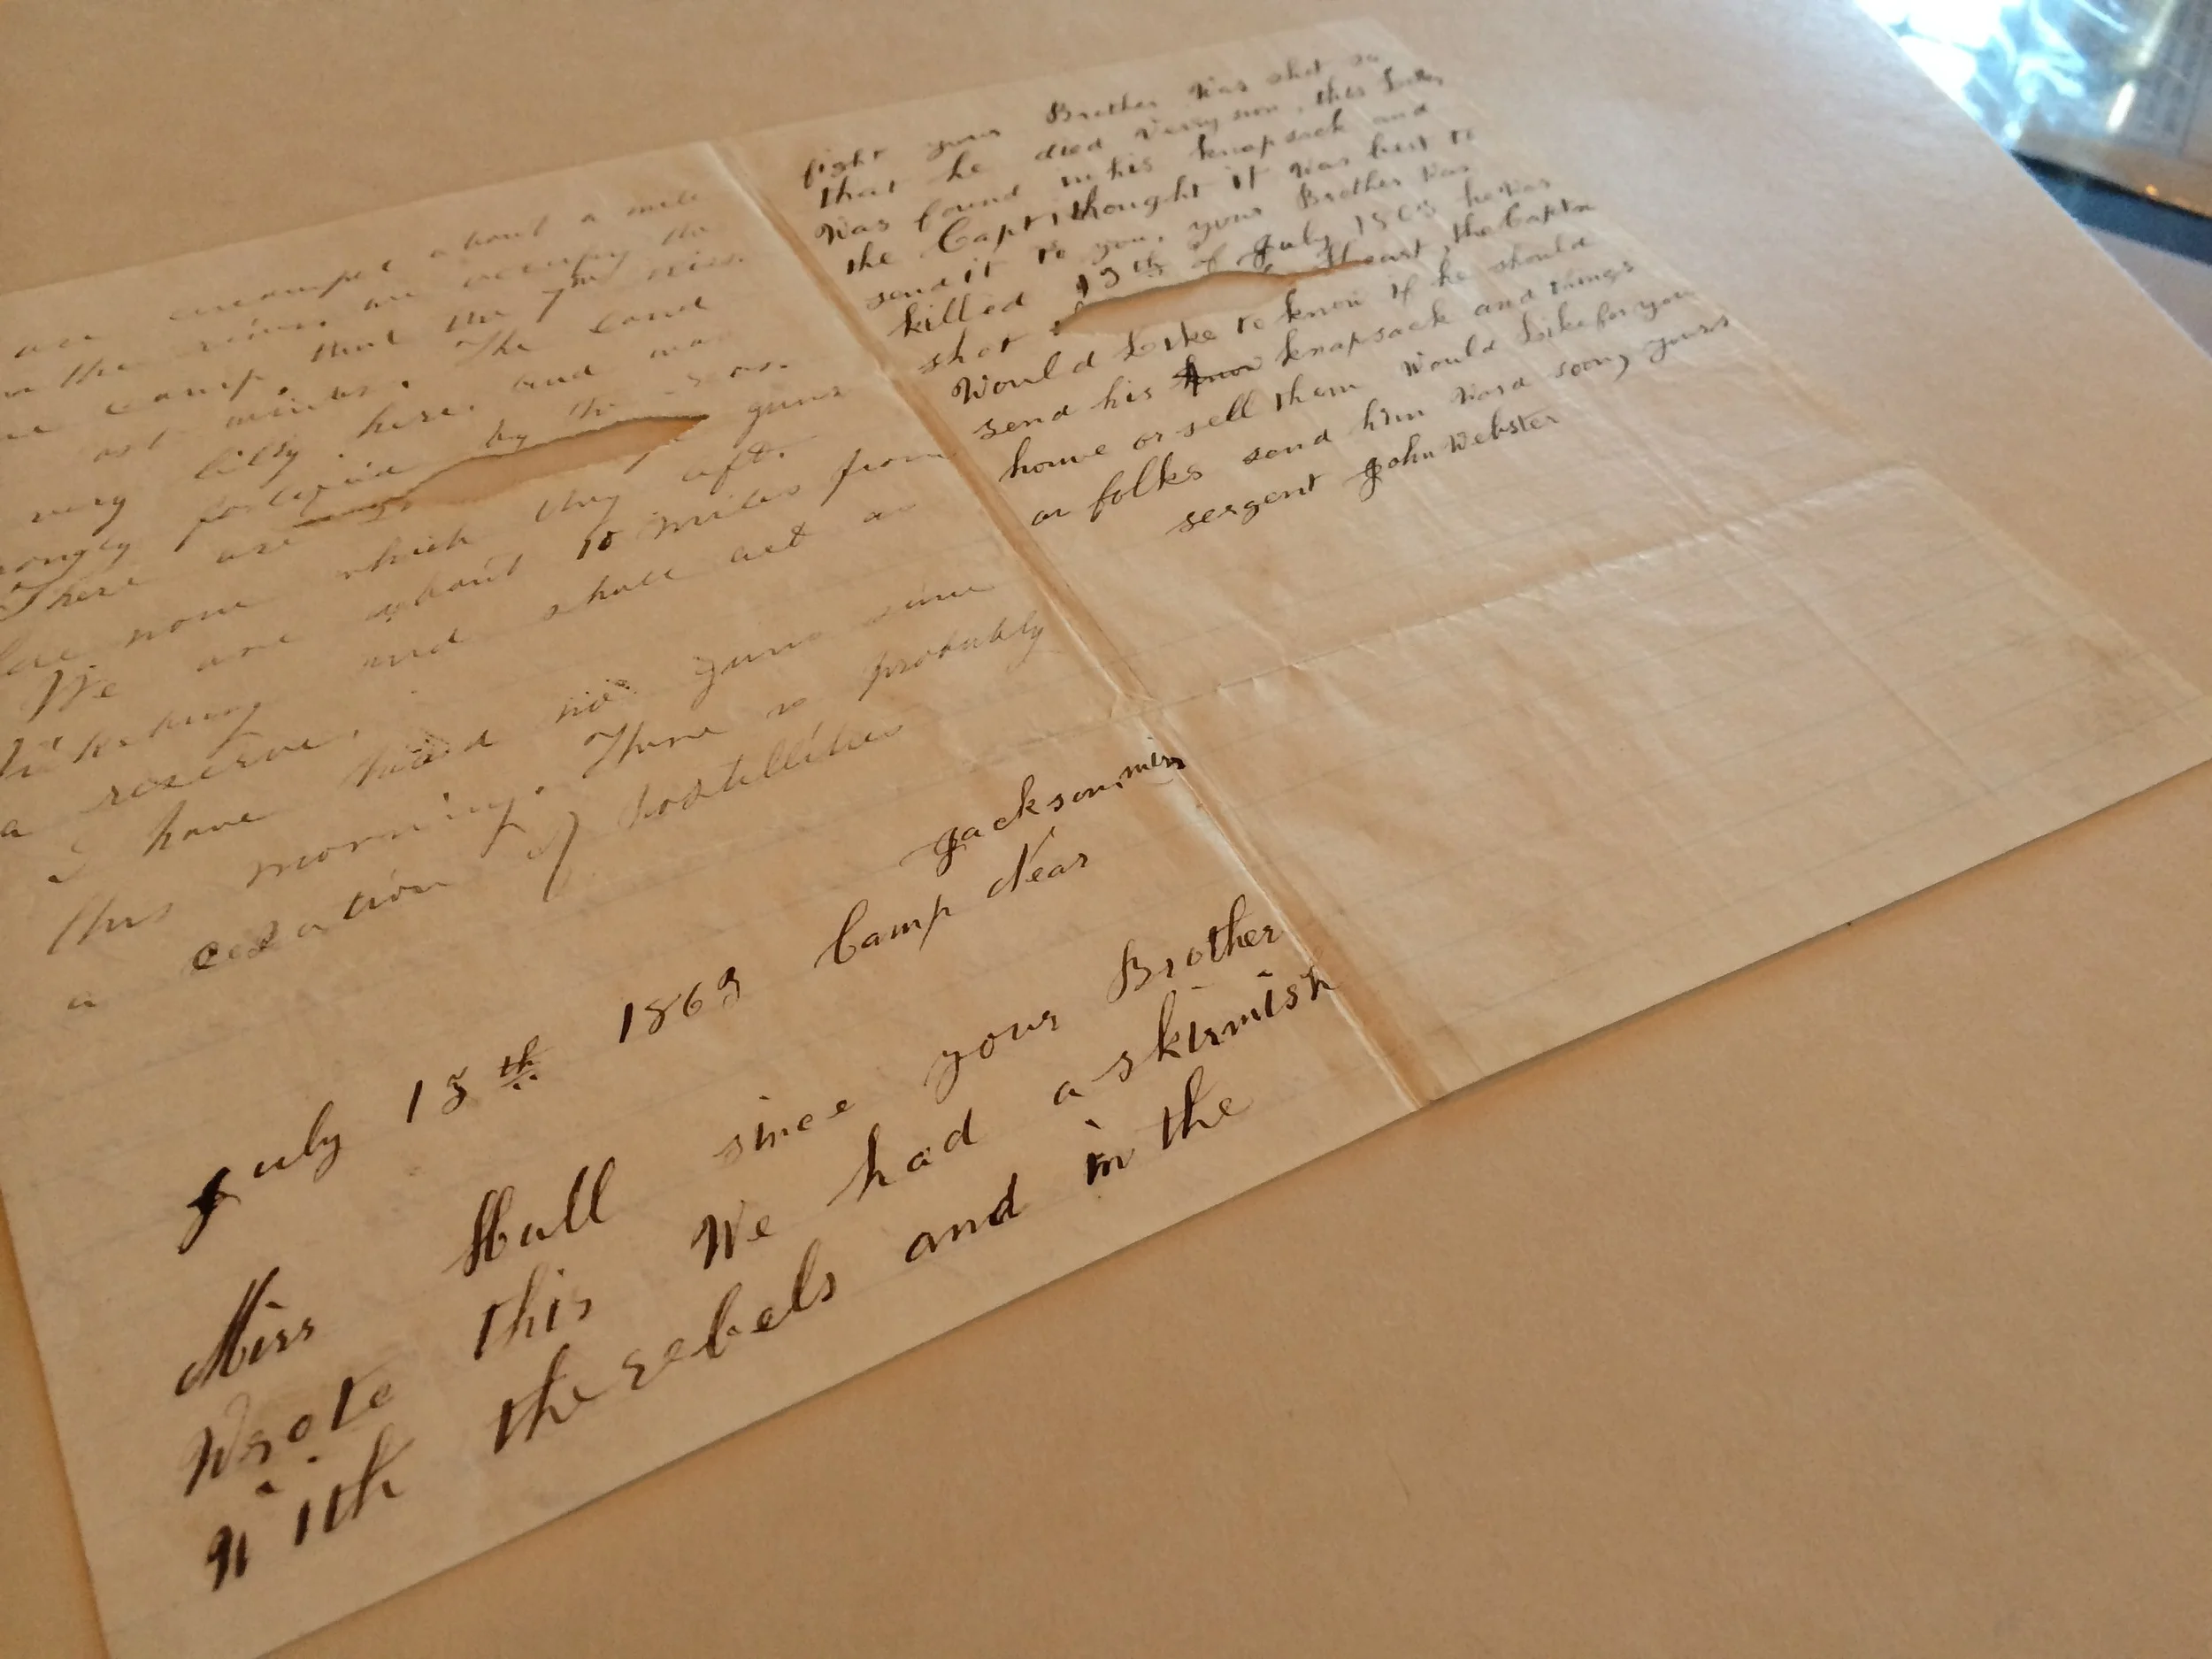 are encamped about a mile
the river, we occupy the
camp, that the 7th Miss.
last winter. The land
very hilly here, and
fortified by the
There are guns
none which they aft.
We are about 10 miles from
and shall act as
a reserve.
I have heard no guns since
this morning. There is probably
a cesation of hostillities
Jackson, miss
July 13th 1863 Camp Near
Miss Hall since your Brother
Wrote this We had a skirmish
With the rebels and in the
fight your Brother Was shot so
that he died Verry soon, this letter
Was found in his knapsack and
the Capt, thought it Was best to
send it to you, your Brother Was
killed 13th of July 1863 he Was
shot heart, the Captn
Would Like to know if he should
send his know knapsack and things
home or sell them Would Like for you
or folks send him Word soon, yours
sergent John Webster